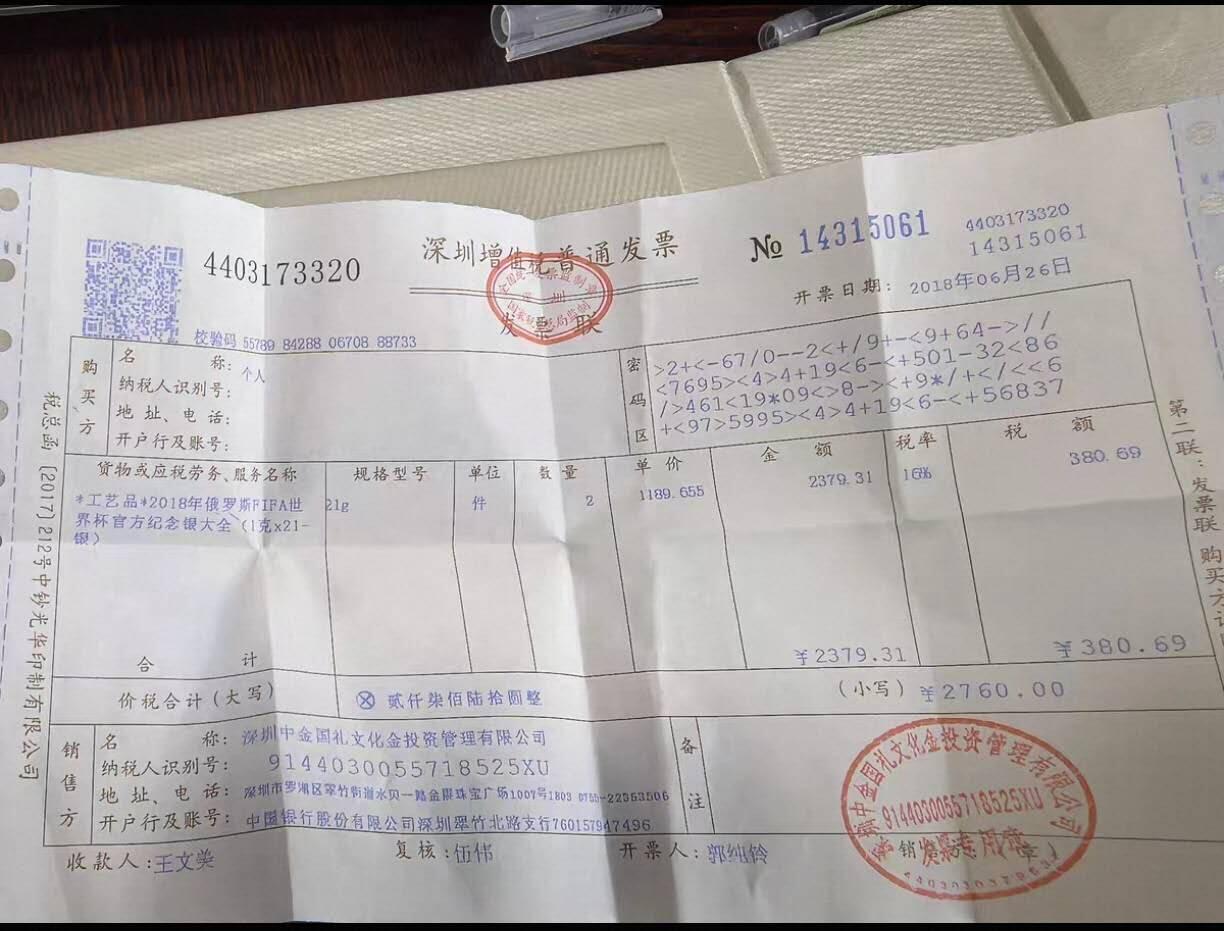 4403173320
深圳增值税普通发票
发票联
No 14315061
4403173320
14315061
开票日期: 2018年06月26日
校验码 55789 84288 06708 88733
购买方
名称: 个人
纳税人识别号:
地址、电话:
开户行及账号:
密码区
>2+<-67/0--2<+/9+-<9+64->//
<7695><4>4+19<6-<+501-32<86
/>461<19*09<>8-><+9*/+</<<6
+<97>5995><4>4+19<6-<+56837
货物或应税劳务、服务名称 规格型号 单位 数量 单价 金额 税率 税额
*工艺品*2018年俄罗斯FIFA世 21g 件 2 1189.655 2379.31 16% 380.69
界杯官方纪念银大全（1克x21-
银）
合计 ¥2379.31 ¥380.69
价税合计(大写) ⊗ 贰仟柒佰陆拾圆整 (小写) ¥2760.00
销售方
名称: 深圳中金国礼文化金投资管理有限公司
纳税人识别号: 9144030055718525XU
地址、电话: 深圳市罗湖区翠竹街道水贝一路金展珠宝广场1007号1803 0755-22353506
开户行及账号: 中国银行股份有限公司深圳翠竹北路支行760157947496
备注
收款人: 王文美
复核: 伍伟
开票人: 郭纯铃
中金国礼文化金投资管理有限公司
9144030055718525XU
发票专用章
税总函〔2017〕212号中钞光华印制有限公司
第二联:发票联 购买方